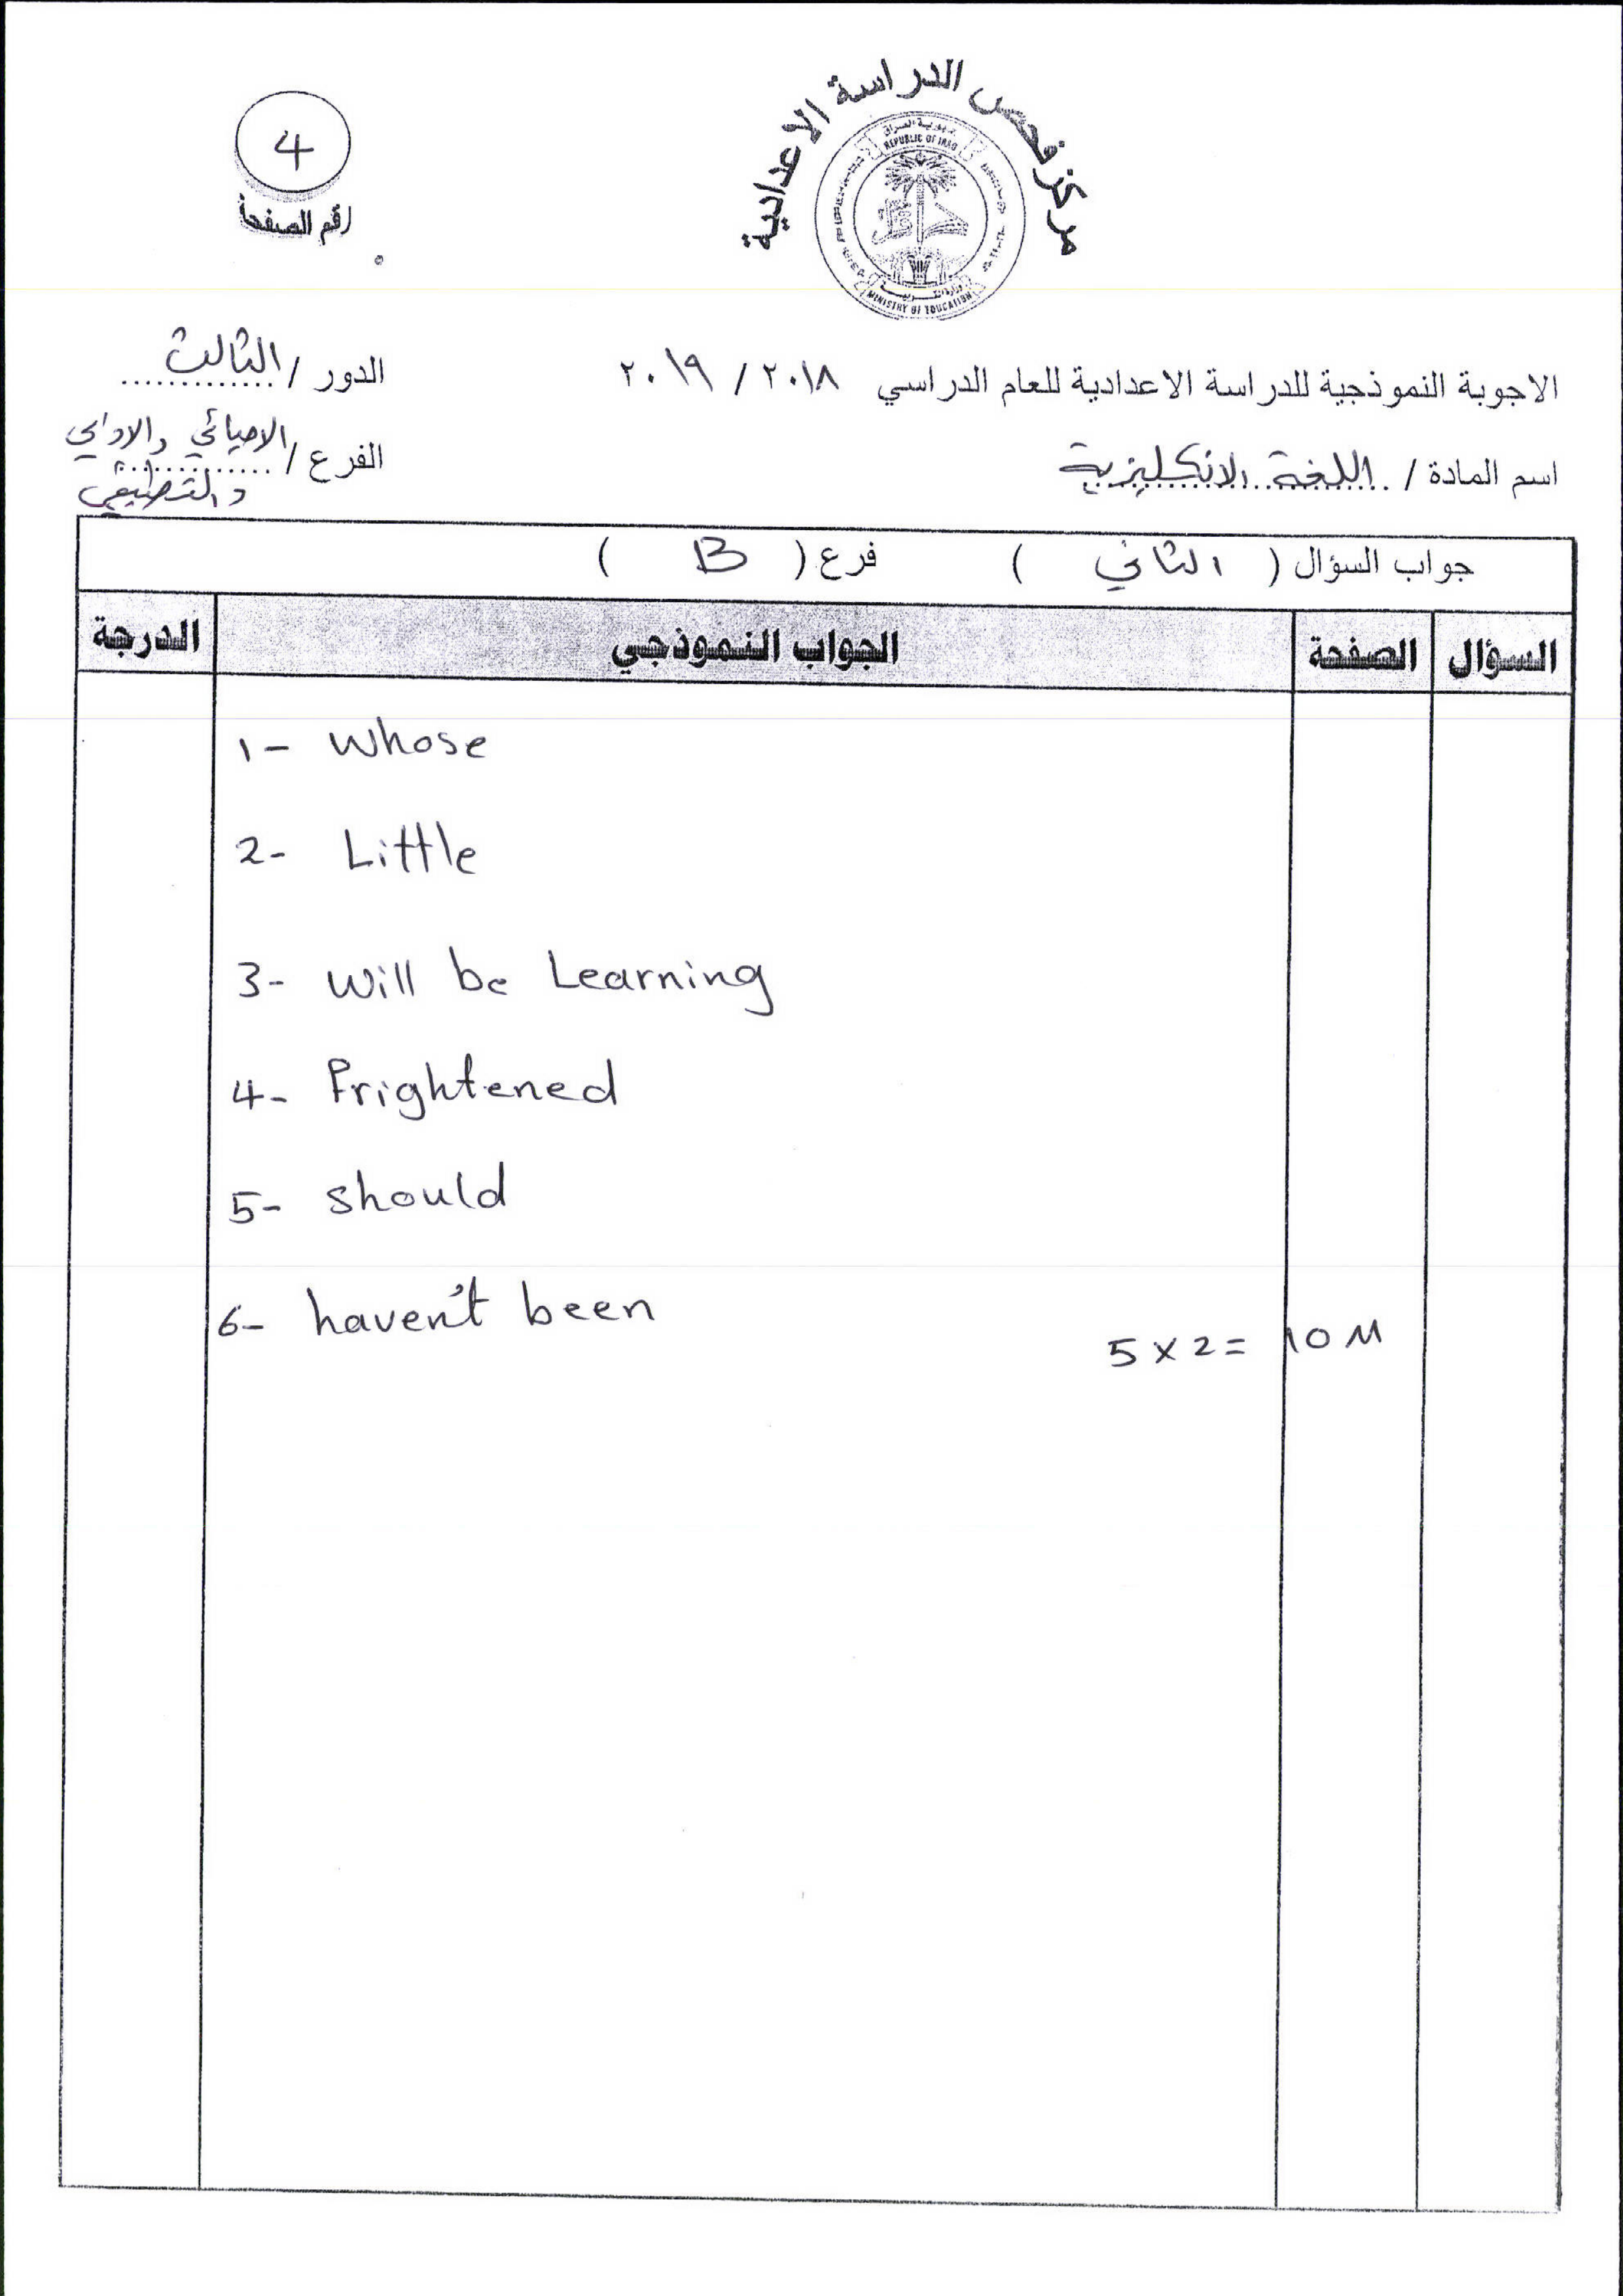 مركز فحص الدراسة الاعدادية
جمهورية العراق
REPUBLIC OF IRAQ
وزارة التربية
MINISTRY OF EDUCATION
4
رقم الصفحة
الاجوبة النموذجية للدراسة الاعدادية للعام الدراسي ٢٠١٨ / ٢٠١٩
الدور / الثالث
اسم المادة / اللغة الانكليزية
الفرع / الاحيائي والادبي
والتطبيقي
جواب السؤال ( الثاني ) فرع ( B )
السؤال الصفحة الجواب النموذجي الدرجة
1- whose
2- Little
3- will be Learning
4- frightened
5- should
6- haven't been
5 x 2 = 10 M